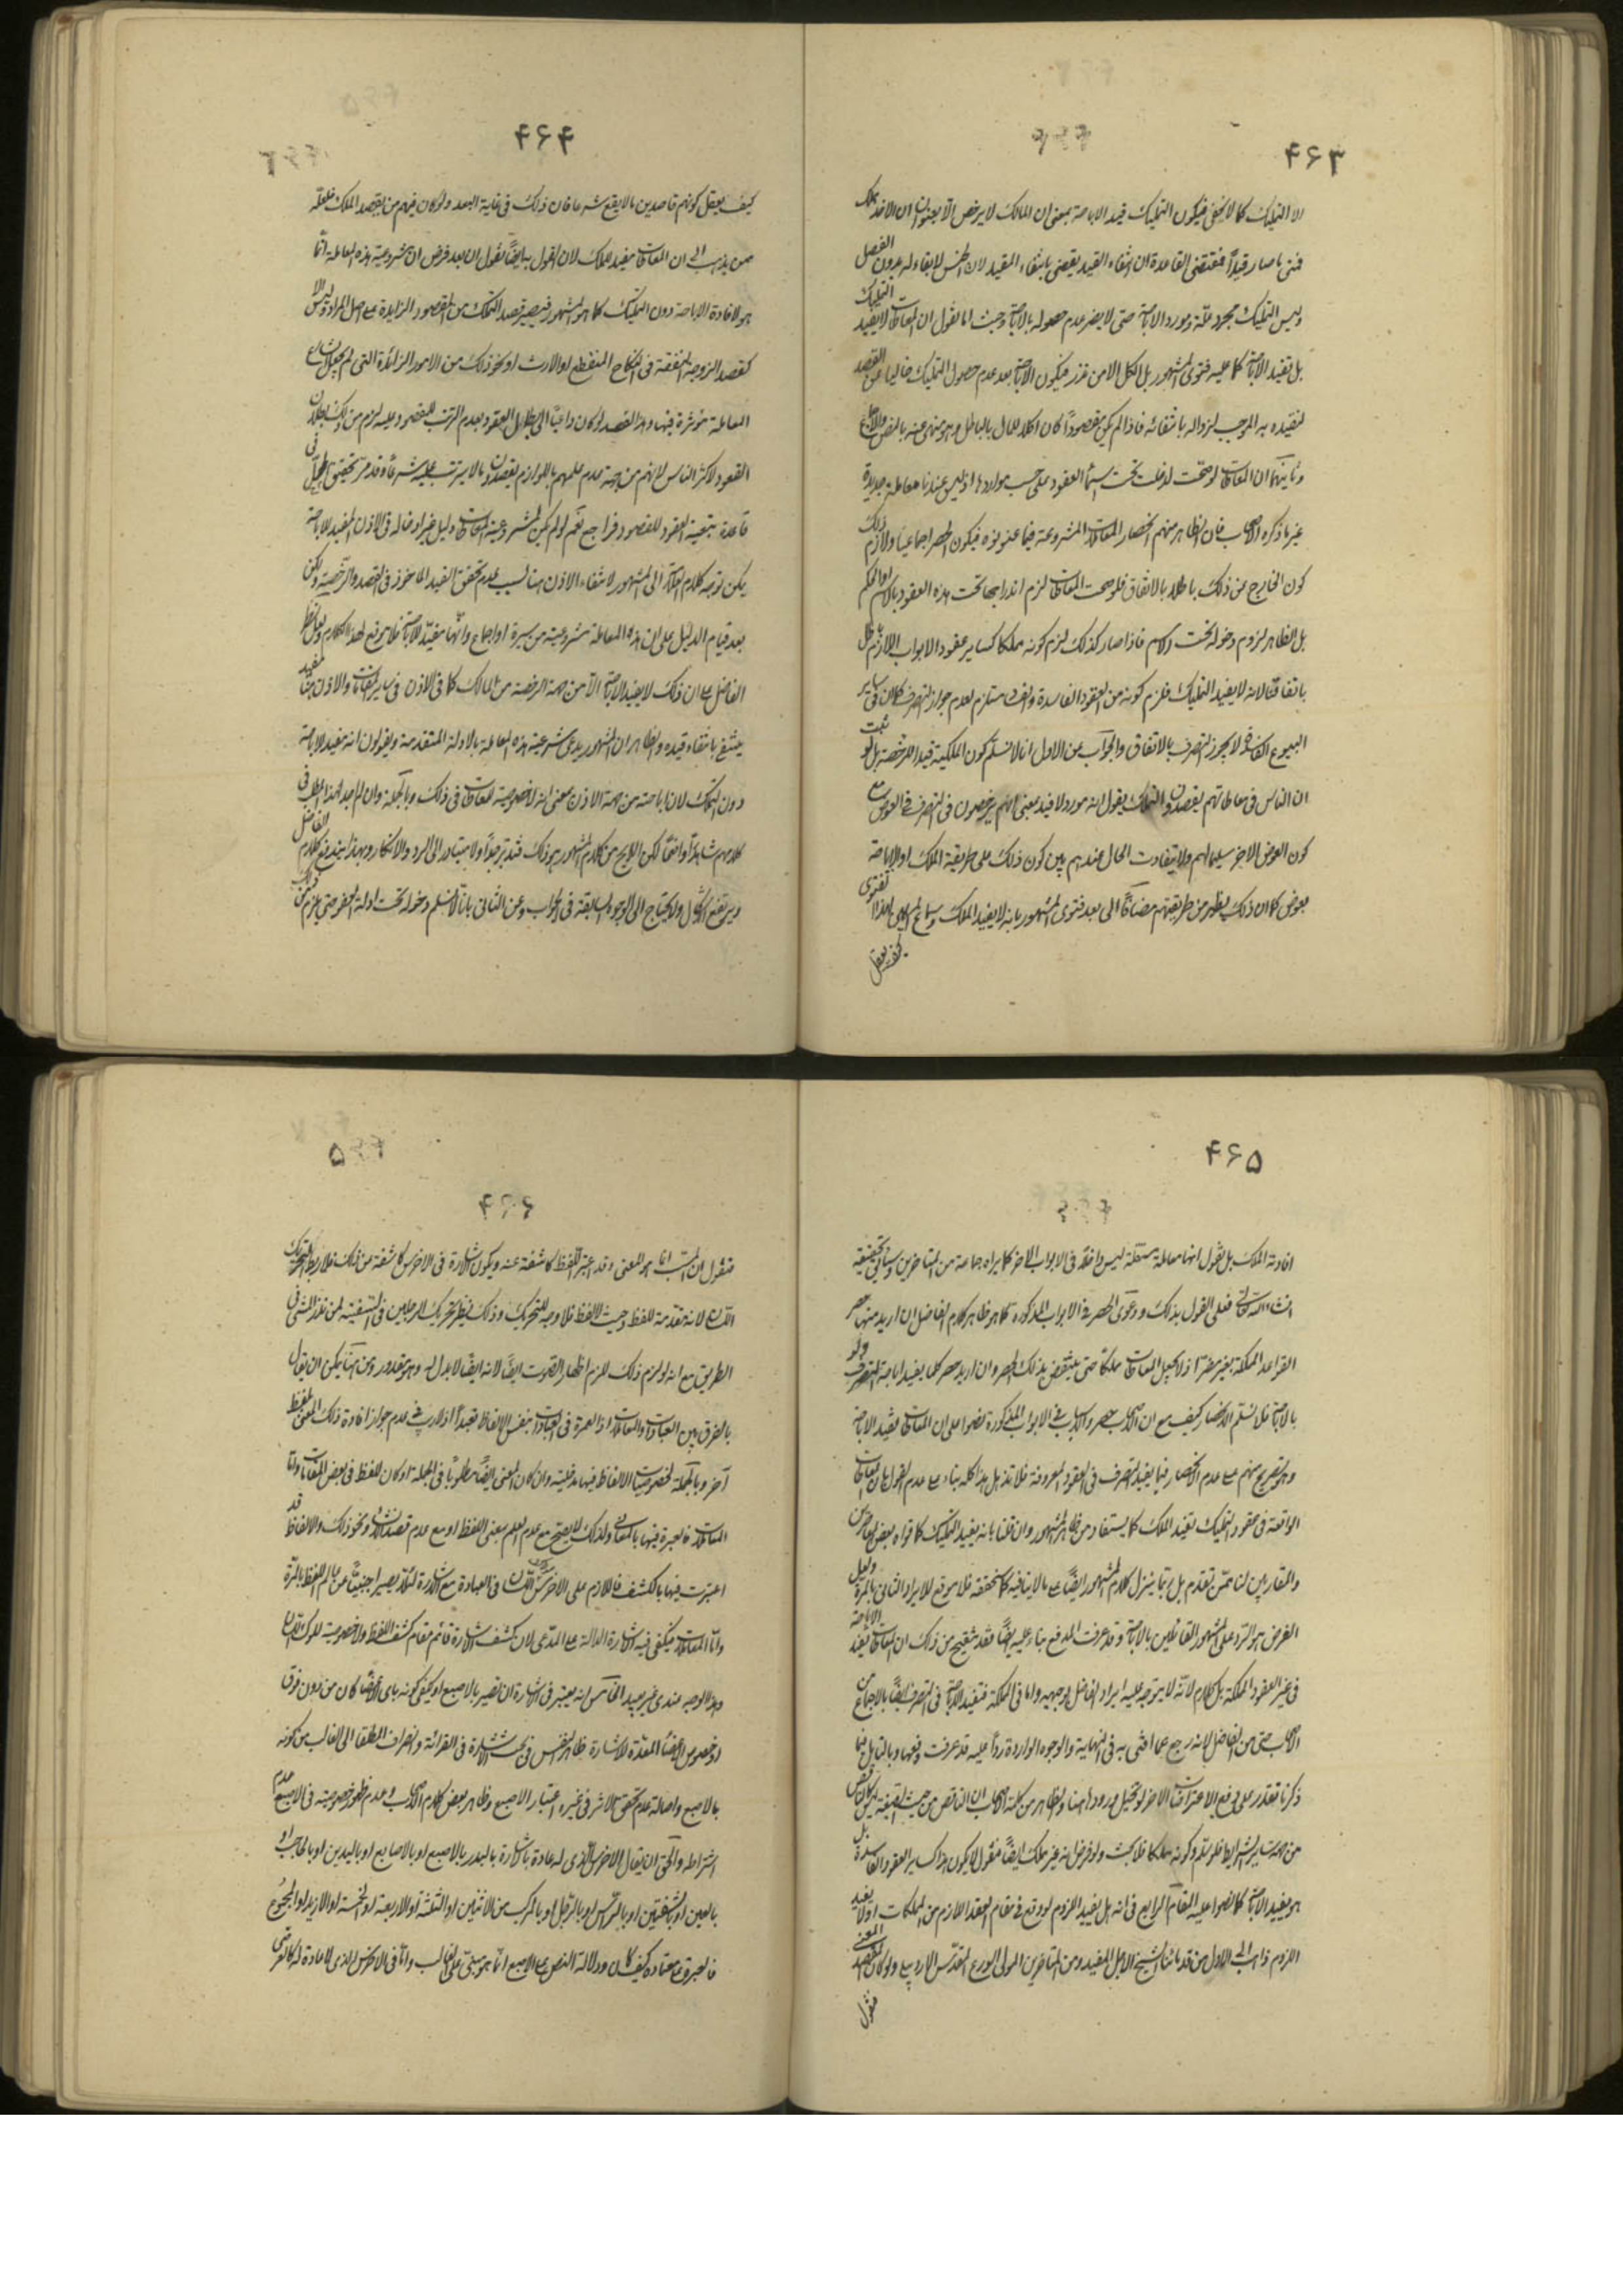 ۴۶۳
الا التمليك كما لا يخفى فيكون التمليك قيد الاباحة بمعنى ان المالك لا يرخص الا بعنوان ان الاخذ يملك
فمتى ما صار قيداً فمقتضى القاعدة ان انتفاء القيد يقضى بانتفاء المقيد لان الجنس لا بقاء له بدون الفصل
وليس التمليك مجرد علّة ومورد الاباحة حتى لا يضر عدم حصوله بالاباحة وحيث انا نقول ان المعاطات لا يفيد التمليك
بل تفيد الاباحة كما عليه فتوى المشهور بل الكل الا من نذر فيكون الاباحة بعد عدم حصول التمليك خاليا عن القصد
لتقيده به الموجب لزواله بانتفائه فاذا لم يكن مقصوداً كان اكلا للمال بالباطل وهو منهى عنه بالنص والاجماع
وثانيهما ان المعاطات لو صحّت لدخلت تحت اسماء العقود على حسب مواردها اذ ليس عندنا معاملة جديدة
غير ما ذكره الاصحاب فان الظاهر منهم انحصار المعاملات المشروعة فيما عنونوه فيكون الحصر اجماعيا ولازم ذلك
كون الخارج عن ذلك باطلا بالاتفاق فلو صحت المعاطات لزم اندراجها تحت هذه العقود بالاسم او الحكم
بل الظاهر لزوم دخوله تحت الاسم فاذا صار كذلك لزم كونه مملكا كساير عقود الابواب واللازم باطل
باتفاقنا لانه لا يفيد التمليك فلزم كونه من العقود الفاسدة والفساد مستلزم لعدم جواز التصرف كما ان فى ساير
البيوع الفاسدة لا يجوز التصرف بالاتفاق والجواب عن الاول انا لا نسلم كون الملكية قيدا للرخصة بل لو ثبت
ان الناس فى معاطاتهم يقصدون التملك يقول انه مورد لا قيد بمعنى انهم يرخصون فى التصرف فى العوض مع
كون العوض الاخر سليما لهم ولا يتفاوت الحال عندهم بين كون ذلك على طريقة الملك او الاباحة
بعوض كما ان ذلك يظهر من طريقتهم مضافاً الى بعد فتوى المشهور بانه لا يفيد الملك وسماعهم لهذا الفتوى
كيف يعقل
۴۶۴
كيف يعقل كونهم قاصدين ما لا يقع شرعا فان ذلك فى غاية البعد ولو كان فيهم من يقصد الملك فلعلّه
ممن يذهب الى ان المعاطات مفيد للملك لان القول به ايضًا نقول ان بعد فرض ان مشروعية هذه المعاملة انّما
هو لافادة الاباحة دون التمليك كما هو المشهور فيصير قصد التملك من المقصود الزايدة على اصل المراد وليس الا
كقصد الزوجة النفقة فى النكاح المنقطع او الارث او نحو ذلك من الامور الزائدة التى لم يجعل الشارع
المعاملة مؤثرة فيها وهذا القصد لو كان داعياً الى بطلان العقود بعدم الترتب المقصود عليه لزم من ذلك بطلان
العقود لاكثر الناس لانهم من جهة عدم علمهم باللوازم يقصدون ما لا يترتب عليه شرعاً وقد مر تحقيق الحال فى
قاعدة تبعية العقود للقصود فراجع نعم لو لم يكن لمشروعية المعاطات دليل غير ادخاله فى الاذن المفيد للاباحة
يمكن توجه كلام العلامة الى المشهور لانتفاء الاذن هنا لسبب عدم تحقق القيد الماخوذ فى القصد والرخصة ولكن
بعد قيام الدليل على ان هذه المعاملة مشروعية من سيرة او اجماع وانّها مفيد للاباحة فلا موقع لهذا الكلام ولعل نظر
الفاضل على ان ذلك لا يفيد الاباحة الا من جهة الرخصة من المالك كما فى الاذن فى ساير المقامات والاذن هنا مقيد
ينتفى بانتفاء قيده والظاهر ان المشهور يدعى شرعية هذه المعاملة بالادلة المتقدمة ويقولون انه مفيد للاباحة
دون التملك لان اباحته من جهة الاذن بمعنى انه لا خصوصية للمعاطات فى ذلك وبالجملة وان لم اجد لهذا المطلب فى
كلامهم شاهداً واضحًا لكن اللايح من كلام المشهور هو ذلك فتدبر جداً ولا تبادر الى الرد والانكار وبهذا يندفع كلام الفاضل
ويرتفع الاشكال ولا يحتاج الى الوجوه السابقة فى الجواب وعن الثانى بانا لا نسلم دخوله تحت ادلة العقود حتى يلزم من ذلك
۴۶۵
افادته الملك بل نقول انها معاملة مستقلة ليس داخلا فى الابواب الاخر كما يراه جماعة من المتاخرين وسياتى تحقيقه
انشاء الله تعالى فعلى القول بذلك ودعوى الحصر فى الابواب المذكورة كما هو ظاهر كلام الفاضل ان اريد منها حصر
القواعد المملكة فغير مضر اذ لا يجعل المعاطات مملكاً حتى ينتقض بذلك الحصر وان اريد حصر كلما يفيد اباحة التصرف ولو
بالاباحة فلا نسلم الانحصار كيف مع ان الاصحاب بعد حصر الابواب فى الابواب المذكورة نصوا على ان المعاطات تفيد الاباحة
وهو تصريح منهم على عدم الانحصار فيما يفيد التصرف فى العقود المعروفة فلا تذهل هذا كله بناء على عدم القول بان المعاطات
الواقعة فى عقود التمليك تفيد الملك كما يستفاد من ظاهر المشهور وان قلنا بانه يفيد التمليك كما قواه بعض المعاصرين
والمقاربين لنا ممّن تقدم بل ربما ينزل كلام المشهور ايضًا على ما لا ينافيه كما ستحققه فلا موقع للايراد الثانى بالمرة ولعل
الغرض هو الرّد على المشهور القائلين بالاباحة وقد عرفت المدفع بناء عليه ايضًا فقد تنقح من ذلك ان المعاطات يفيد الاباحة
فى غير العقود المملكة بل كلام لانّه لا يتوجه عليه ايراد الفاضل بوجهيه واما فى المملكة فتفيد الاباحة فى التصرف ايضًا بالاجماع من
الاصحاب حتى من الفاضل لانه رجع عما افتى به فى النهاية والوجوه الواردة رداً عليه قد عرفت دفعها وبالتامل فيما
ذكرنا تقدر على دفع الاعتراضات الاخر لو تخيل ورودها هنا
من جهة ساير الشرايط فلو سلم وكونه مملكا فلا بحث ولو فرض انه غير مملك ايضًا فنقول لا يكون هذا كساير العقود الفاسدة بل
هو يفيد الاباحة كما نصوا عليه المقام الرابع فى انه هل يفيد اللزوم لو وقع فى مقام العقد اللازم من المملكات او لا يفيد
اللزوم ذاهب الى الاول من قدمائنا الشيخ الاجل المفيد ومن المتاخرين المولى الورع المقدّس الاردبيلى
فنقول
۴۶۶
فنقول ان المعتبر انما هو المعنى وقد اعتبر اللفظ كاشفة عنه ويكون الاشارة فى الاخرس كاشفة من ذلك فلا ربط لتحريك
اللسان لانه مقدمة للفظ وحيث لا لفظ فلا وجه للتحريك وذلك نظير تحريك الرجلين فى السفينة لمن نذر المشى فى
الطريق مع انه لو لزم ذلك للزم اظهار الصوت ايضًا لانه ايضًا لا بدل له وهو مقدور ومن هنا يمكن ان يقول
بالفرق بين العبادات والمعاملات اذ العبرة فى العبادات بنفس الالفاظ تعبداً اذ لا ريب فى عدم جواز افادة ذلك المعنى بلفظ
آخر وبالجملة لخصوصيات الالفاظ فيها مدخلية وان كان المعنى ايضًا مطلوبًا فى الجملة او كان اللفظ فى بعض المقامات واما
المعاملات فالعبرة فيها بالمعانى ولذلك لا يصح مع عدم العلم بمعنى اللفظ او مع عدم قصد الانشاء ونحو ذلك والالفاظ قد
اعتبرت فيها بالكشف فاللازم على الاخرس تحريك اللسان فى العبادة مع الاشارة لئلا يصير اجنبيّاً عن عالم اللفظ بالمرّة
وامّا المعاملات فيكفى فيه الاشارة الدالة على المدّعى لان كشف الاشارة قائم مقام كشف اللفظ ولا خصوصية لحركة اللسان
وهذا الوجه عندى غير بعيد الخامس انه يعتبر فى الاشارة ان تصير بالاصبع او يكفى كونه باى الاعضاء كان من دون فرق
او خصوص الاعضاء المعدّة للاشارة ظاهر النص فى بحث الاشارة فى القرائة وانصراف المطلقا الى الغالب من كونه
بالاصبع واصالة عدم تحقق الاثر فى غيره اعتبار الاصبع وظاهر بعض كلام الاصحاب وعدم ظهور خصوصيته فى الاصبع عدم
اشتراطه والحق ان يقال الاخرس الذى له عادة باشارة باليد او بالاصبع او بالاصابع او باليدين او بالحاجب او
بالعين او بالشفتين او بالرأس او بالرّجل او بالمركب من الاثنين او الثلثة او الاربعة او الخمسة او الازيد او المجموع
فالعبرة بمعتاده كيف كان ودلالة النص على الاصبع انّما هو مبنى على الغالب وامّا فى الاخرس الذى لا عادة له كالعرضى